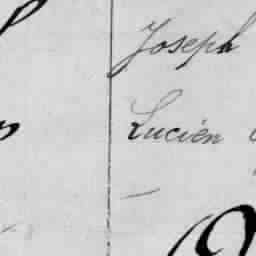 Joseph
Lucien